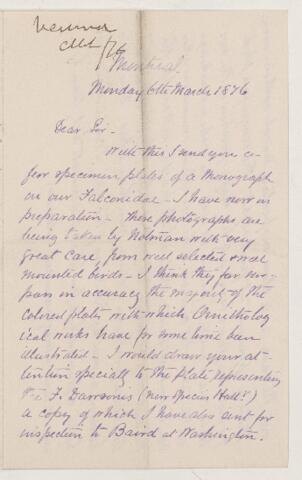 Montreal
Monday 6th March 1876
Dear Sir -
With this I send you a
few specimen plates of a Monograph
on our Falconidae - I have now in
preparation - These photographs are
being taken by Notman with very
great care, from well selected & well
mounted birds - I think they far sur-
pass in accuracy the majority of the
colored plates with which Ornitholog
ical works have for some time been
illustrated - I would draw your at-
tention specially to the plate representing
the F. Dawsonis (new species Hall?)
a copy of which I have also sent for
inspection to Baird at Washington.